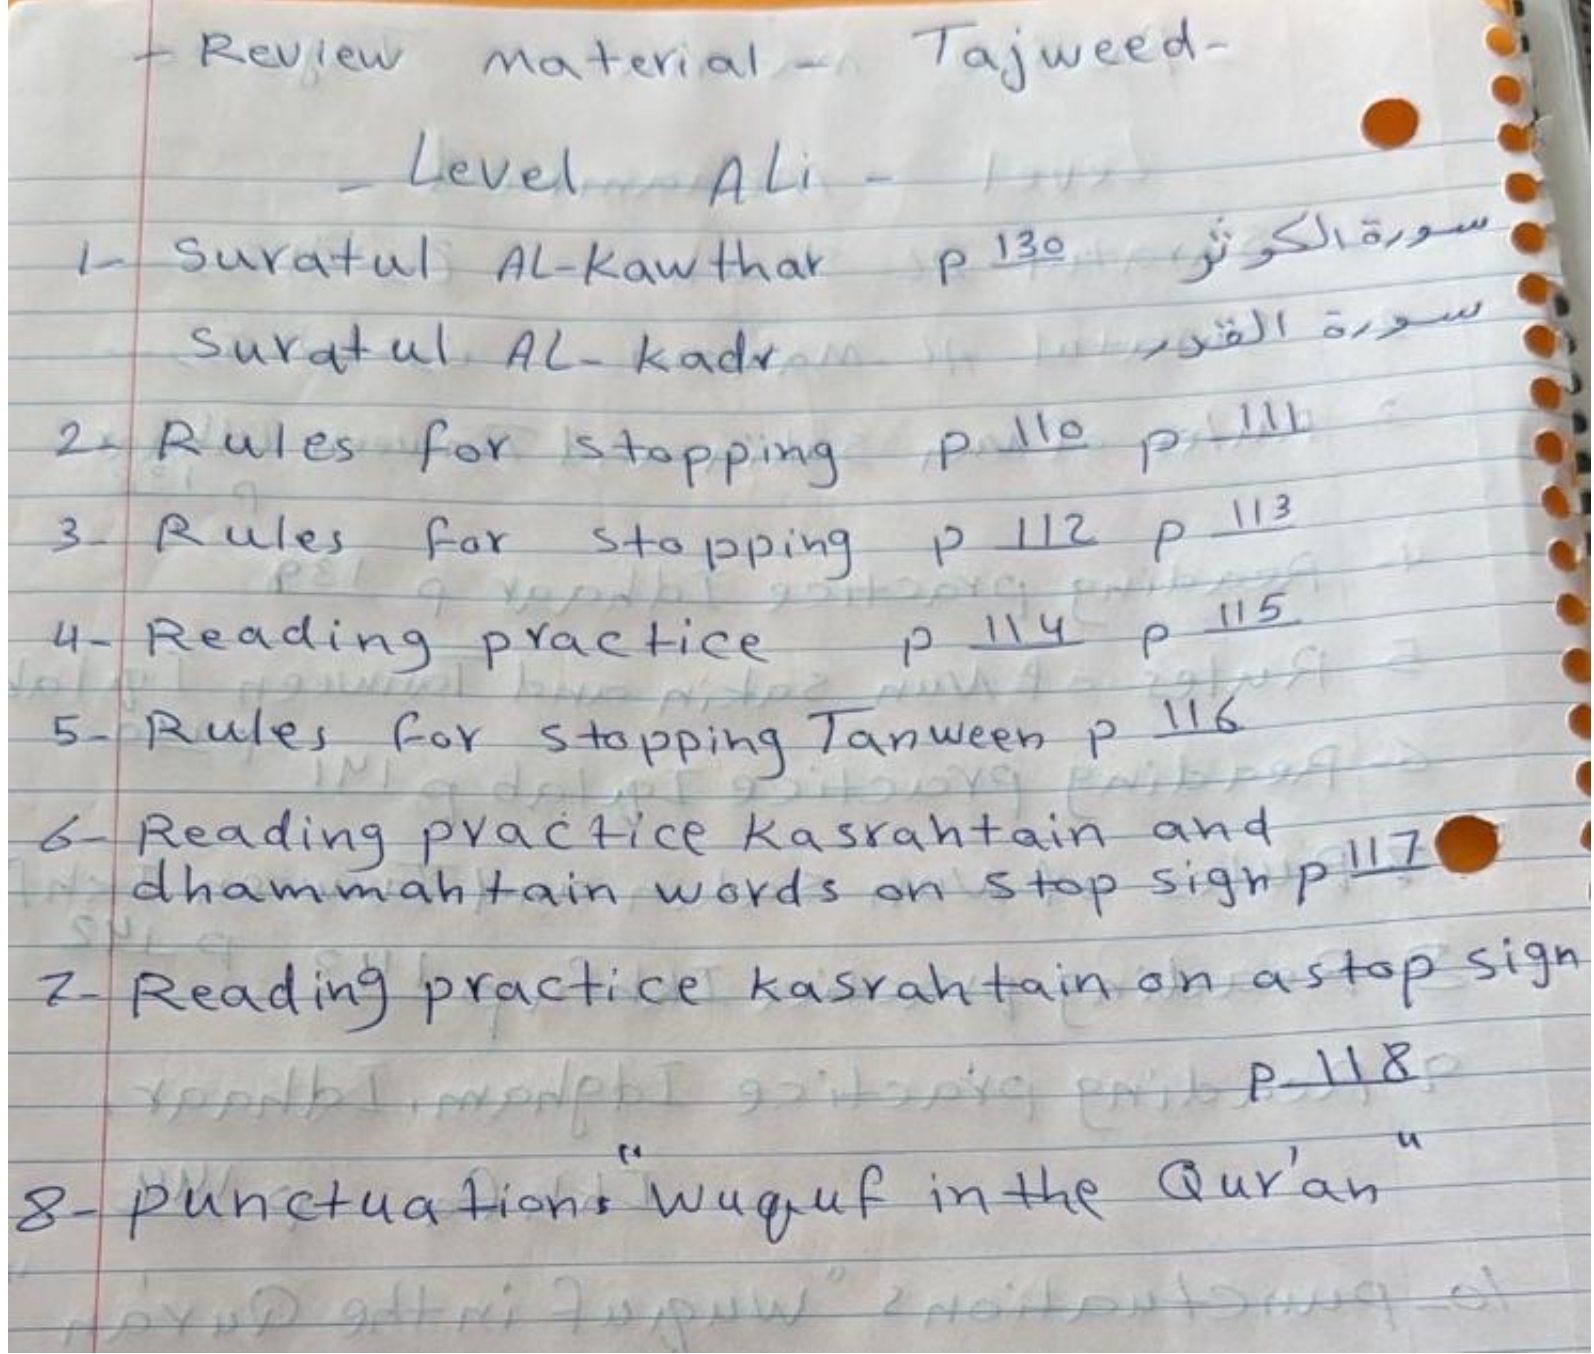 - Review material - Tajweed -
- Level ALi -
1- Suratul AL-Kawthar p 130 سورة الكوثر
Suratul AL-Kadr سورة القدر
2- Rules for stopping p 110 p 111
3- Rules for stopping p 112 p 113
4- Reading practice p 114 p 115
5- Rules for stopping Tanween p 116
6- Reading practice kasrahtain and
dhammahtain words on stop sign p 117
7- Reading practice kasrahtain on a stop sign
p 118
8- punctuations "Wuquf in the Qur'an"